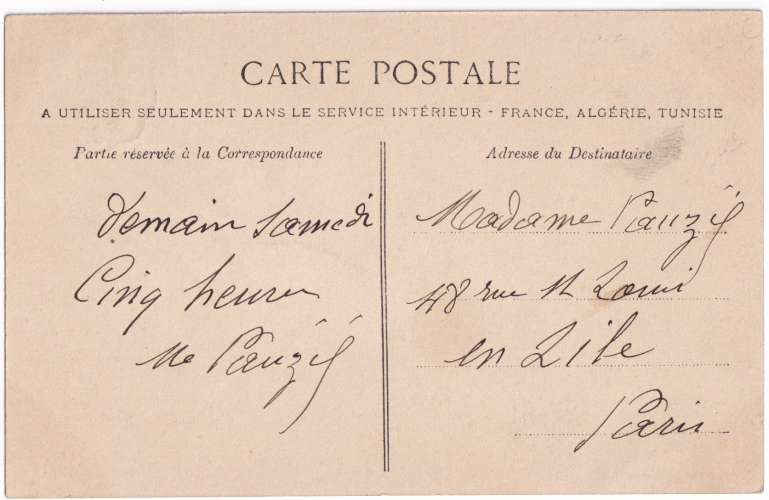 CARTE POSTALE
A UTILISER SEULEMENT DANS LE SERVICE INTÉRIEUR - FRANCE, ALGÉRIE, TUNISIE
Partie réservée à la Correspondance
demain samedi
Cinq heures
Me Pauzié
Adresse du Destinataire
Madame Pauzié
48 rue St Louis
en Lile
Paris